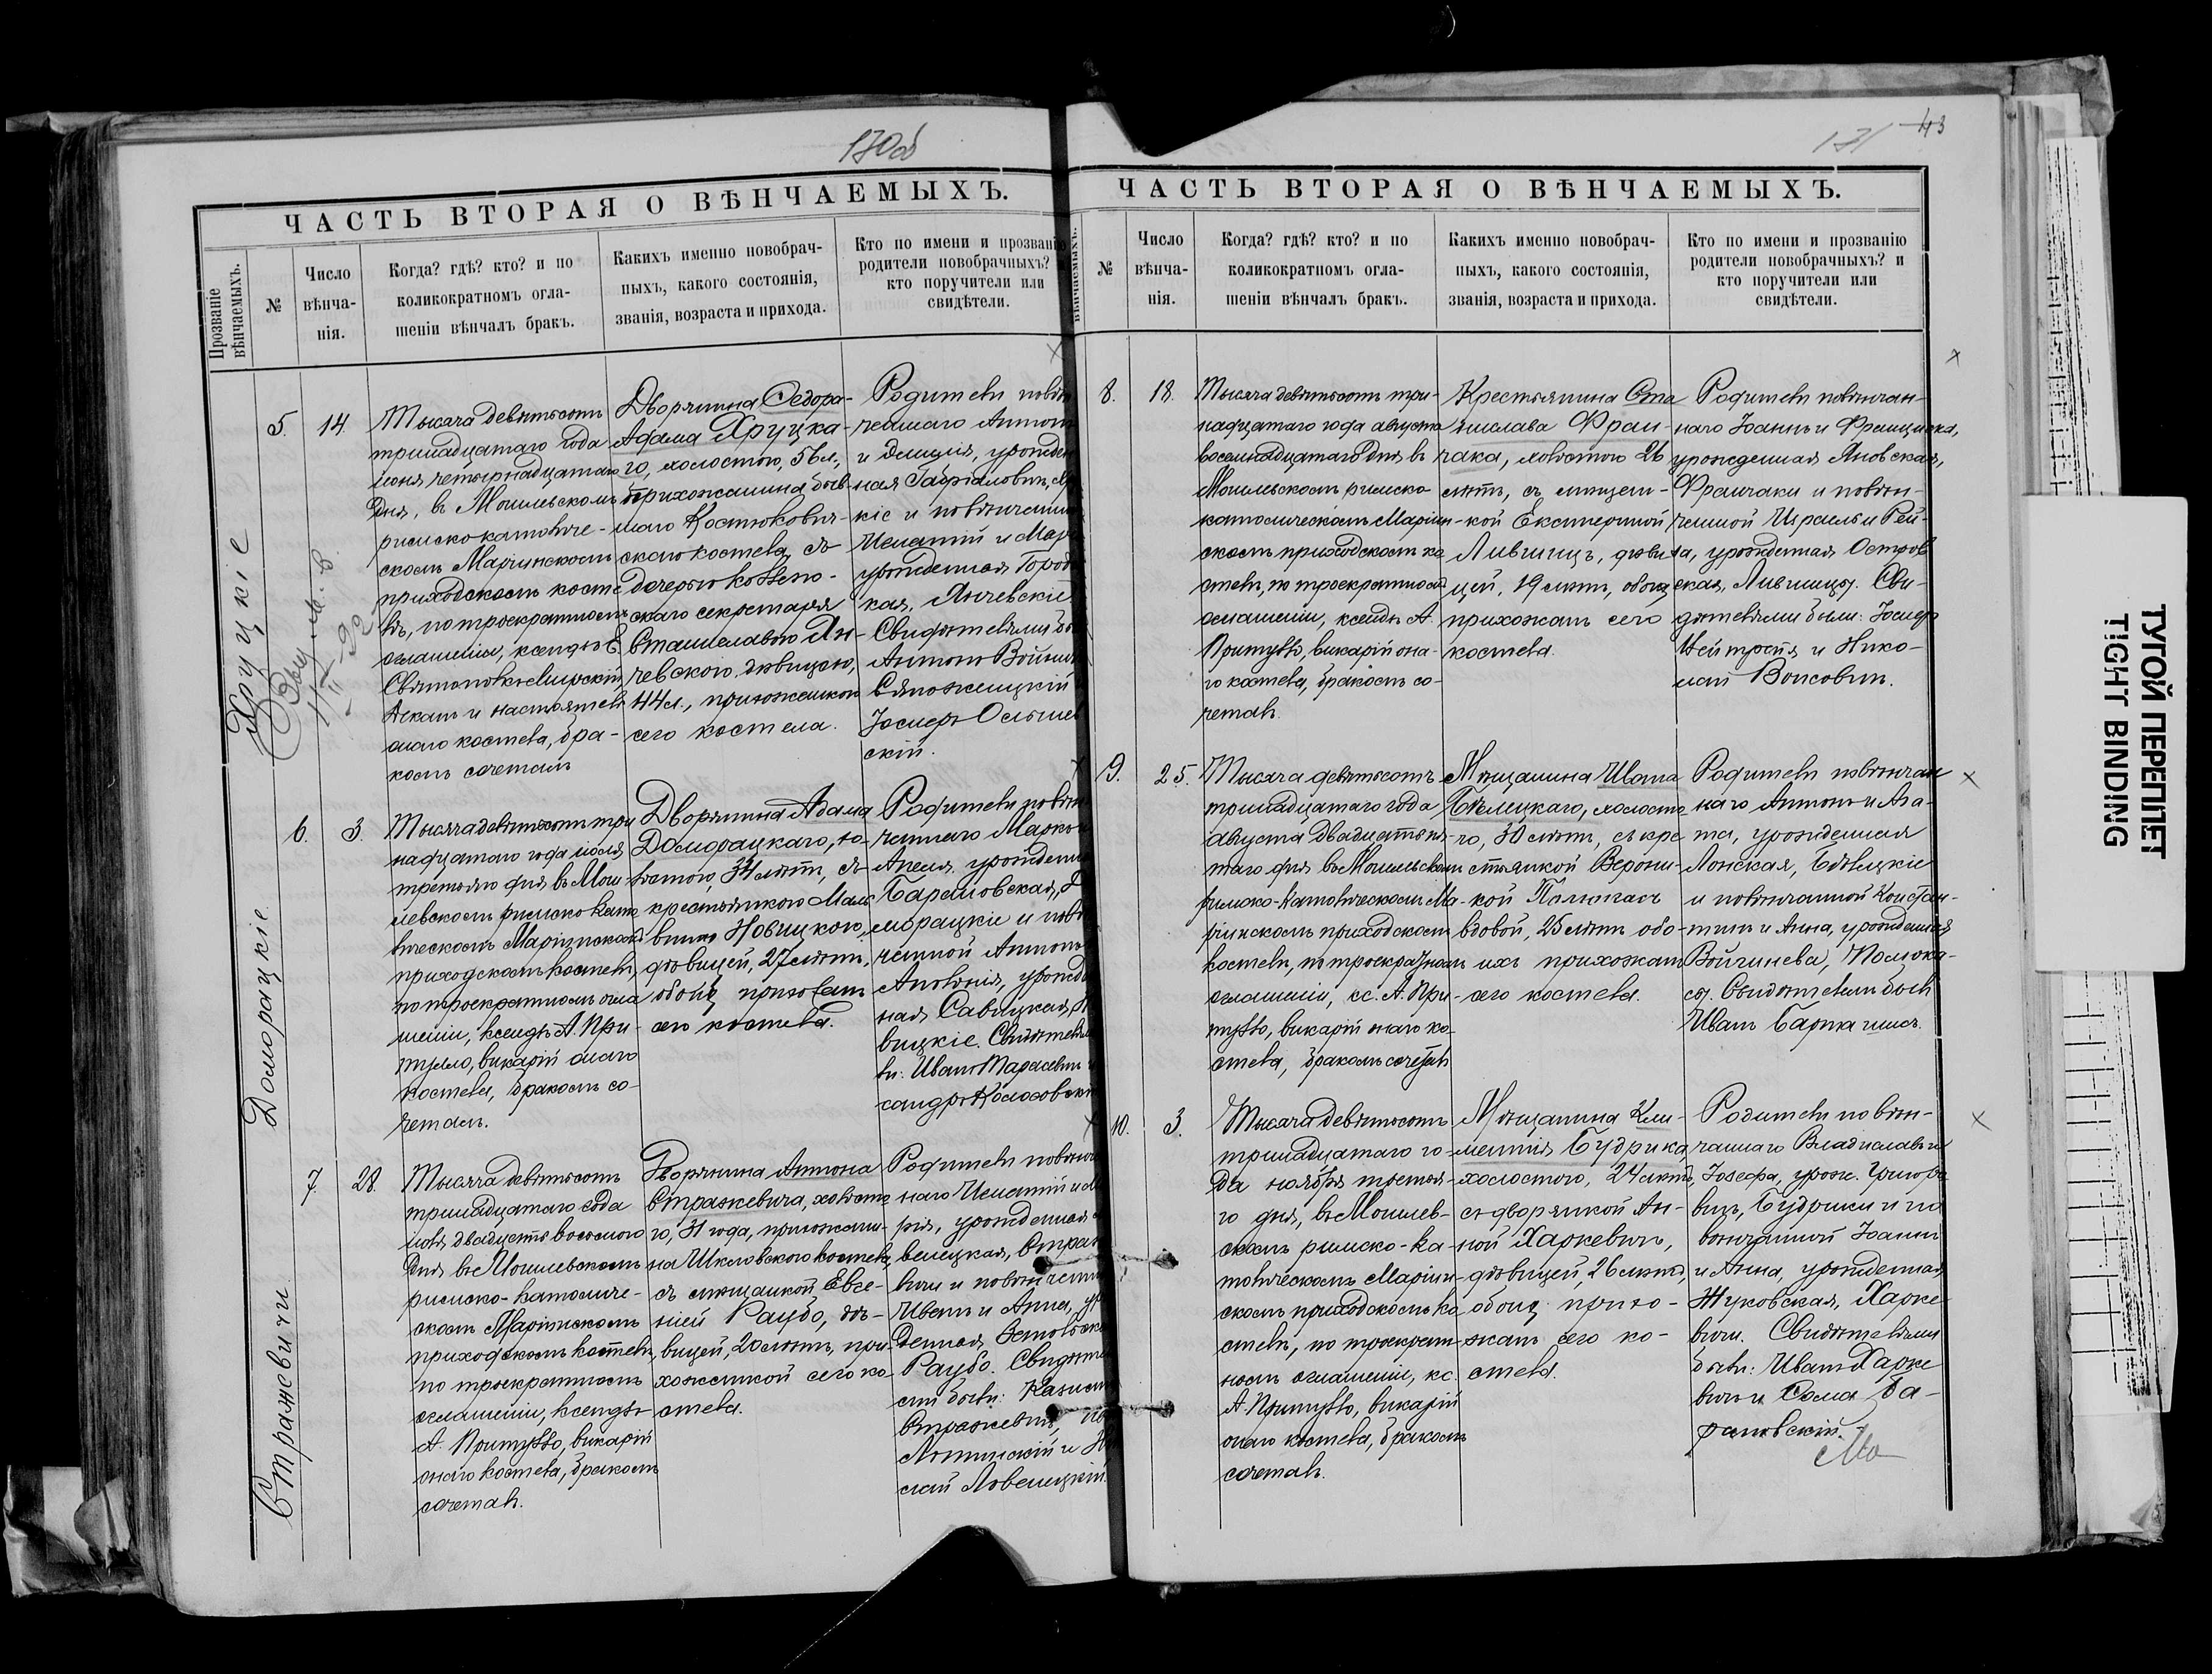 170об
ЧАСТЬ ВТОРАЯ О ВѢНЧАЕМЫХЪ.
Прозваніе вѣнчаемыхъ.
№
Число вѣнча-
нія.
Когда? гдѣ? кто? и по
коликократномъ огла-
шеніи вѣнчалъ бракъ.
Какихъ именно новобрач-
ныхъ, какого состоянія,
званія, возраста и прихода.
Кто по имени и прозванію
родители новобрачныхъ?
кто поручители или
свидѣтели.
Хруцкіе
5.
14.
Тысяча девятьсотъ
тринадцатаго года
іюня четырнадцатаго
дня, въ Могилевскомъ
римско-католиче-
скомъ Маріинскомъ
приходскомъ косте-
лѣ, по троекратномъ
оглашеніи, ксендзъ Е
Святополкъ-Мирскій,
деканъ и настоятель
онаго костела, бра-
комъ сочеталъ
Дворянина Ѳедора-
Адама Хруцка-
го, холостого, 56 л.,
прихожанина быв-
шаго Костюкович-
скаго костела, съ
дочерью коллеж-
скаго секретаря
Станиславою Ян-
чевскою, дѣвицею,
44 л., прихожанкою
сего костела.
Родители повѣн
чаннаго Антон
и Эмилія, урожден
ная Гавріаловичъ, Хр
кіе и повѣнчанн
Игнатій и Мар
урожденная Город
кая, Янчевскіе
Свидѣтелями бы
Антонъ Войни
Сяноженцкій
Іосифъ Ольшев
скій.
Доморацкіе
6.
3.
Тысяча девятьсотъ три
надцатаго года іюля
третьяго дня въ Моги
левскомъ римско-като
лическомъ Маріинскомъ
приходскомъ костелѣ,
по троекратномъ огла
шеніи, ксендзъ А. При-
тулло, викарій онаго
костела, бракомъ со-
четалъ.
Дворянина Адама
Доморацкаго, хо-
лостого, 34 лѣтъ, съ
крестьянкою Маль
виною Новицкою,
дѣвицей, 27 лѣтъ,
обоихъ прихожанъ
сего костела.
Родители повѣн
чаннаго Марко
Анеля, урожденн
Барановская, До
морацкіе и повѣ
чанной Антонъ
Антонія, урожде
ная Савицкая, Но
вицкіе. Свидѣтеля
ли: Иванъ Тарасевичъ
сандръ Колосовск
Стражевичи
7.
28.
Тысяча девятьсотъ
тринадцатаго года
іюля двадцать восьмого
дня въ Могилевскомъ
римско-католиче-
скомъ Маріинскомъ
приходскомъ костелѣ,
по троекратномъ
оглашеніи, ксендзъ
А. Притулло, викарій
онаго костела, бракомъ
сочеталъ.
Дворянина Антона
Стражевича, холосто
го, 31 года, прихожани-
на Шкловскаго костела,
съ мѣщанкой Евге-
ніей Раубо, дѣ-
вицей, 20 лѣтъ, при-
хожанкой сего ко-
стела.
Родители повѣнч
наго Игнатій и М
рія, урожденная
венецкая, Страже
вичи и повѣнчанн
Иванъ и Анна, ур
денная
Раубо. Свидѣте
ми были: Казим
Стражевичъ,
и Ни
лай Ловенецкій.
171 43
ЧАСТЬ ВТОРАЯ О ВѢНЧАЕМЫХЪ.
вѣнчаемыхъ.
№
Число
вѣнча-
нія.
Когда? гдѣ? кто? и по
коликократномъ огла-
шеніи вѣнчалъ бракъ.
Какихъ именно новобрач-
ныхъ, какого состоянія,
званія, возраста и прихода.
Кто по имени и прозванію
родители новобрачныхъ? и
кто поручители или
свидѣтели.
8.
18.
Тысяча девятьсотъ три-
надцатаго года августа
восемнадцатаго дня въ
Могилевскомъ римско-
католическомъ Маріин-
скомъ приходскомъ ко
стелѣ, по троекратномъ
оглашеніи, ксендзъ А.
Притулло, викарій она-
го костела, бракомъ со-
четалъ.
Крестьянина Ста
нислава Фран-
чака, холостого 26
лѣтъ, съ мѣщан-
кой Екатериной
Лившицъ, дѣви
цей, 19 лѣтъ, обоихъ
прихожанъ сего
костела.
Родители повѣнчан-
наго Іоаннъ и Францишка,
урожденная Яновская,
Франчаки и повѣн-
чанной Израель и Рей-
за, урожденная Остров
ская, Лившицы. Сви-
дѣтелями были: Іосифъ
и Нико-
лай Войсовичъ.
9.
25.
Тысяча девятьсотъ
тринадцатаго года
августа двадцать пя-
таго дня въ Могилевскомъ
римско-католическомъ Ма-
ріинскомъ приходскомъ
костелѣ, по троекратномъ
оглашеніи, кс. А. При-
тулло, викарій онаго ко-
стела, бракомъ сочеталъ
Мѣщанина Ивана
Бѣлецкаго, холосто
го, 30 лѣтъ, съ кре
стьянкой Верони-
кой Полюгасъ
вдовой, 25 лѣтъ обо-
ихъ прихожанъ
сего костела.
Родители повѣнчан
наго Антонъ и Ага-
та, урожденная
Лонская, Бѣлецкіе
и повѣнчанной Констан-
тинъ и Анна, урожденная
Войчинева,
Свидѣтелями были
Иванъ
10.
3.
Тысяча девятьсотъ
тринадцатаго го-
да ноября третья-
го дня, въ Могилев-
скомъ римско-ка-
толическомъ Маріин-
скомъ приходскомъ ко
стелѣ, по троекрат-
номъ оглашеніи, кс.
А. Притулло, викарій
онаго костела, бракомъ
сочеталъ.
Мѣщанина Кли-
ментія Будрика
холостого, 24 лѣтъ,
съ дворянкой Ан-
ной Харкевичъ,
дѣвицей, 26 лѣтъ,
обоихъ прихо-
жанъ сего ко-
стела.
Родители повѣн-
чаннаго Владиславъ и
Іозефа, урож. Григоро
вичъ, Будрики и по
вѣнчанной Іоаннъ
и Анна, урожденная
Жуковская, Харке
вичи. Свидѣтелями
были: Иванъ Харке
вичъ и Ѳома Ба-
рановскій.
ТУГОЙ ПЕРЕПЛЕТ
TIGHT BINDING